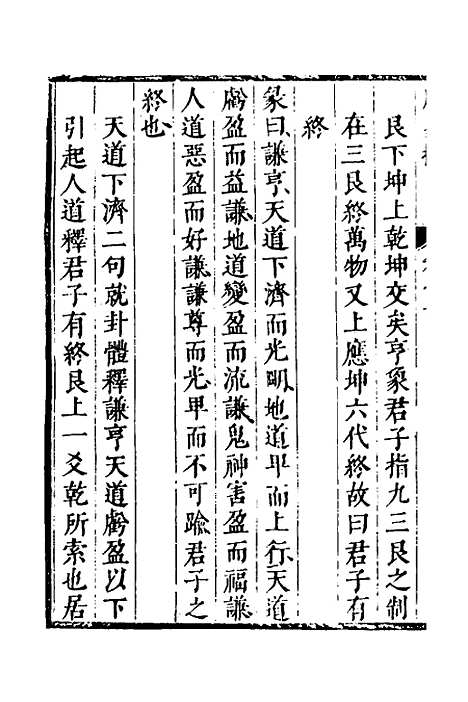 艮下坤上乾坤交矣亨象君子指九三艮之制
在三艮終萬物又上應坤六代終故曰君子有
終
彖曰謙亨天道下濟而光明地道卑而上行天道
虧盈而益謙地道變盈而流謙鬼神害盈而福謙
人道惡盈而好謙謙尊而光卑而不可踰君子之
終也
天道下濟二句就卦體釋謙亨天道虧盈以下
引起人道釋君子有終艮上一爻乾所索也居